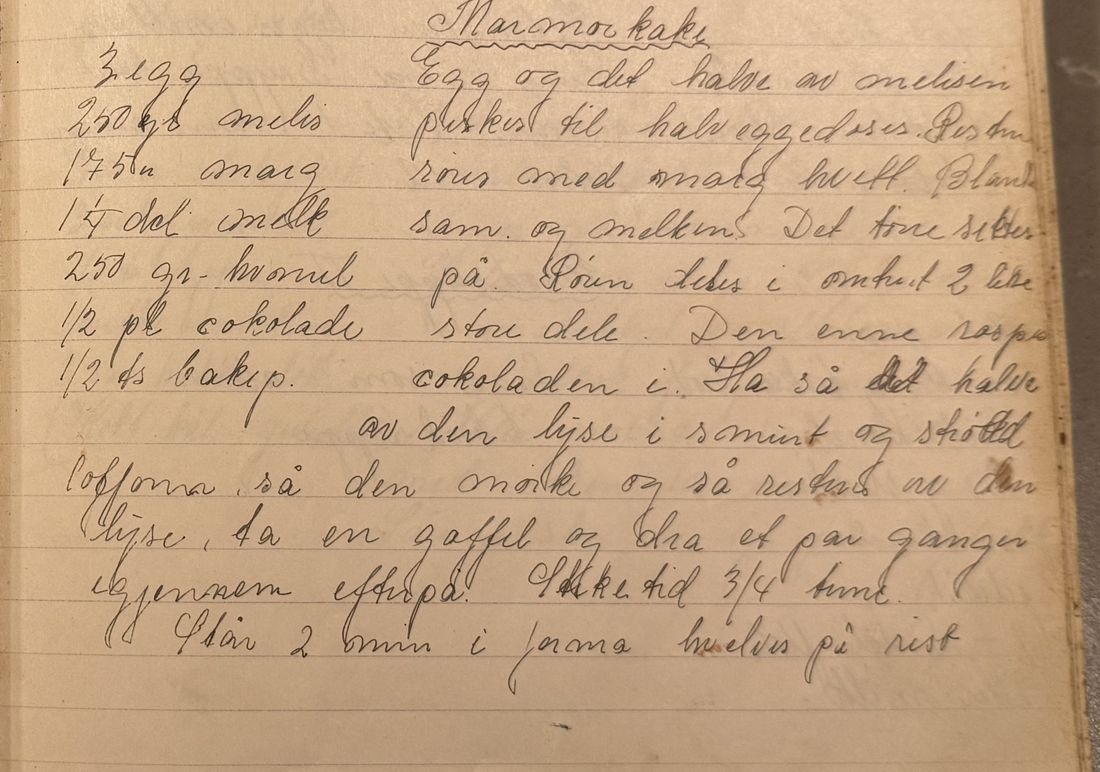 Marmorkake
3 egg Egg og det halve av melisen
250 gr melis piskes til halv eggedosis. Resten
175 " marg røres med marg hvitt. Blandes
1 1/4 del melk sam. og melken. Det tørre siktes
250 gr. hvemel på. Røren deles i omtret 2 like
1/2 pl cokolade store dele. Den enne raspes
1/2 ts bakep. cokoladen i. Ha så det halve
av den lyse i smurt og strødd
lofform, så den mørke og så resten av den
lyse, ta en gaffel og dra et par ganger
igjennem efterpå. Steketid 3/4 time.
Står 2 min i forma hvelves på rist